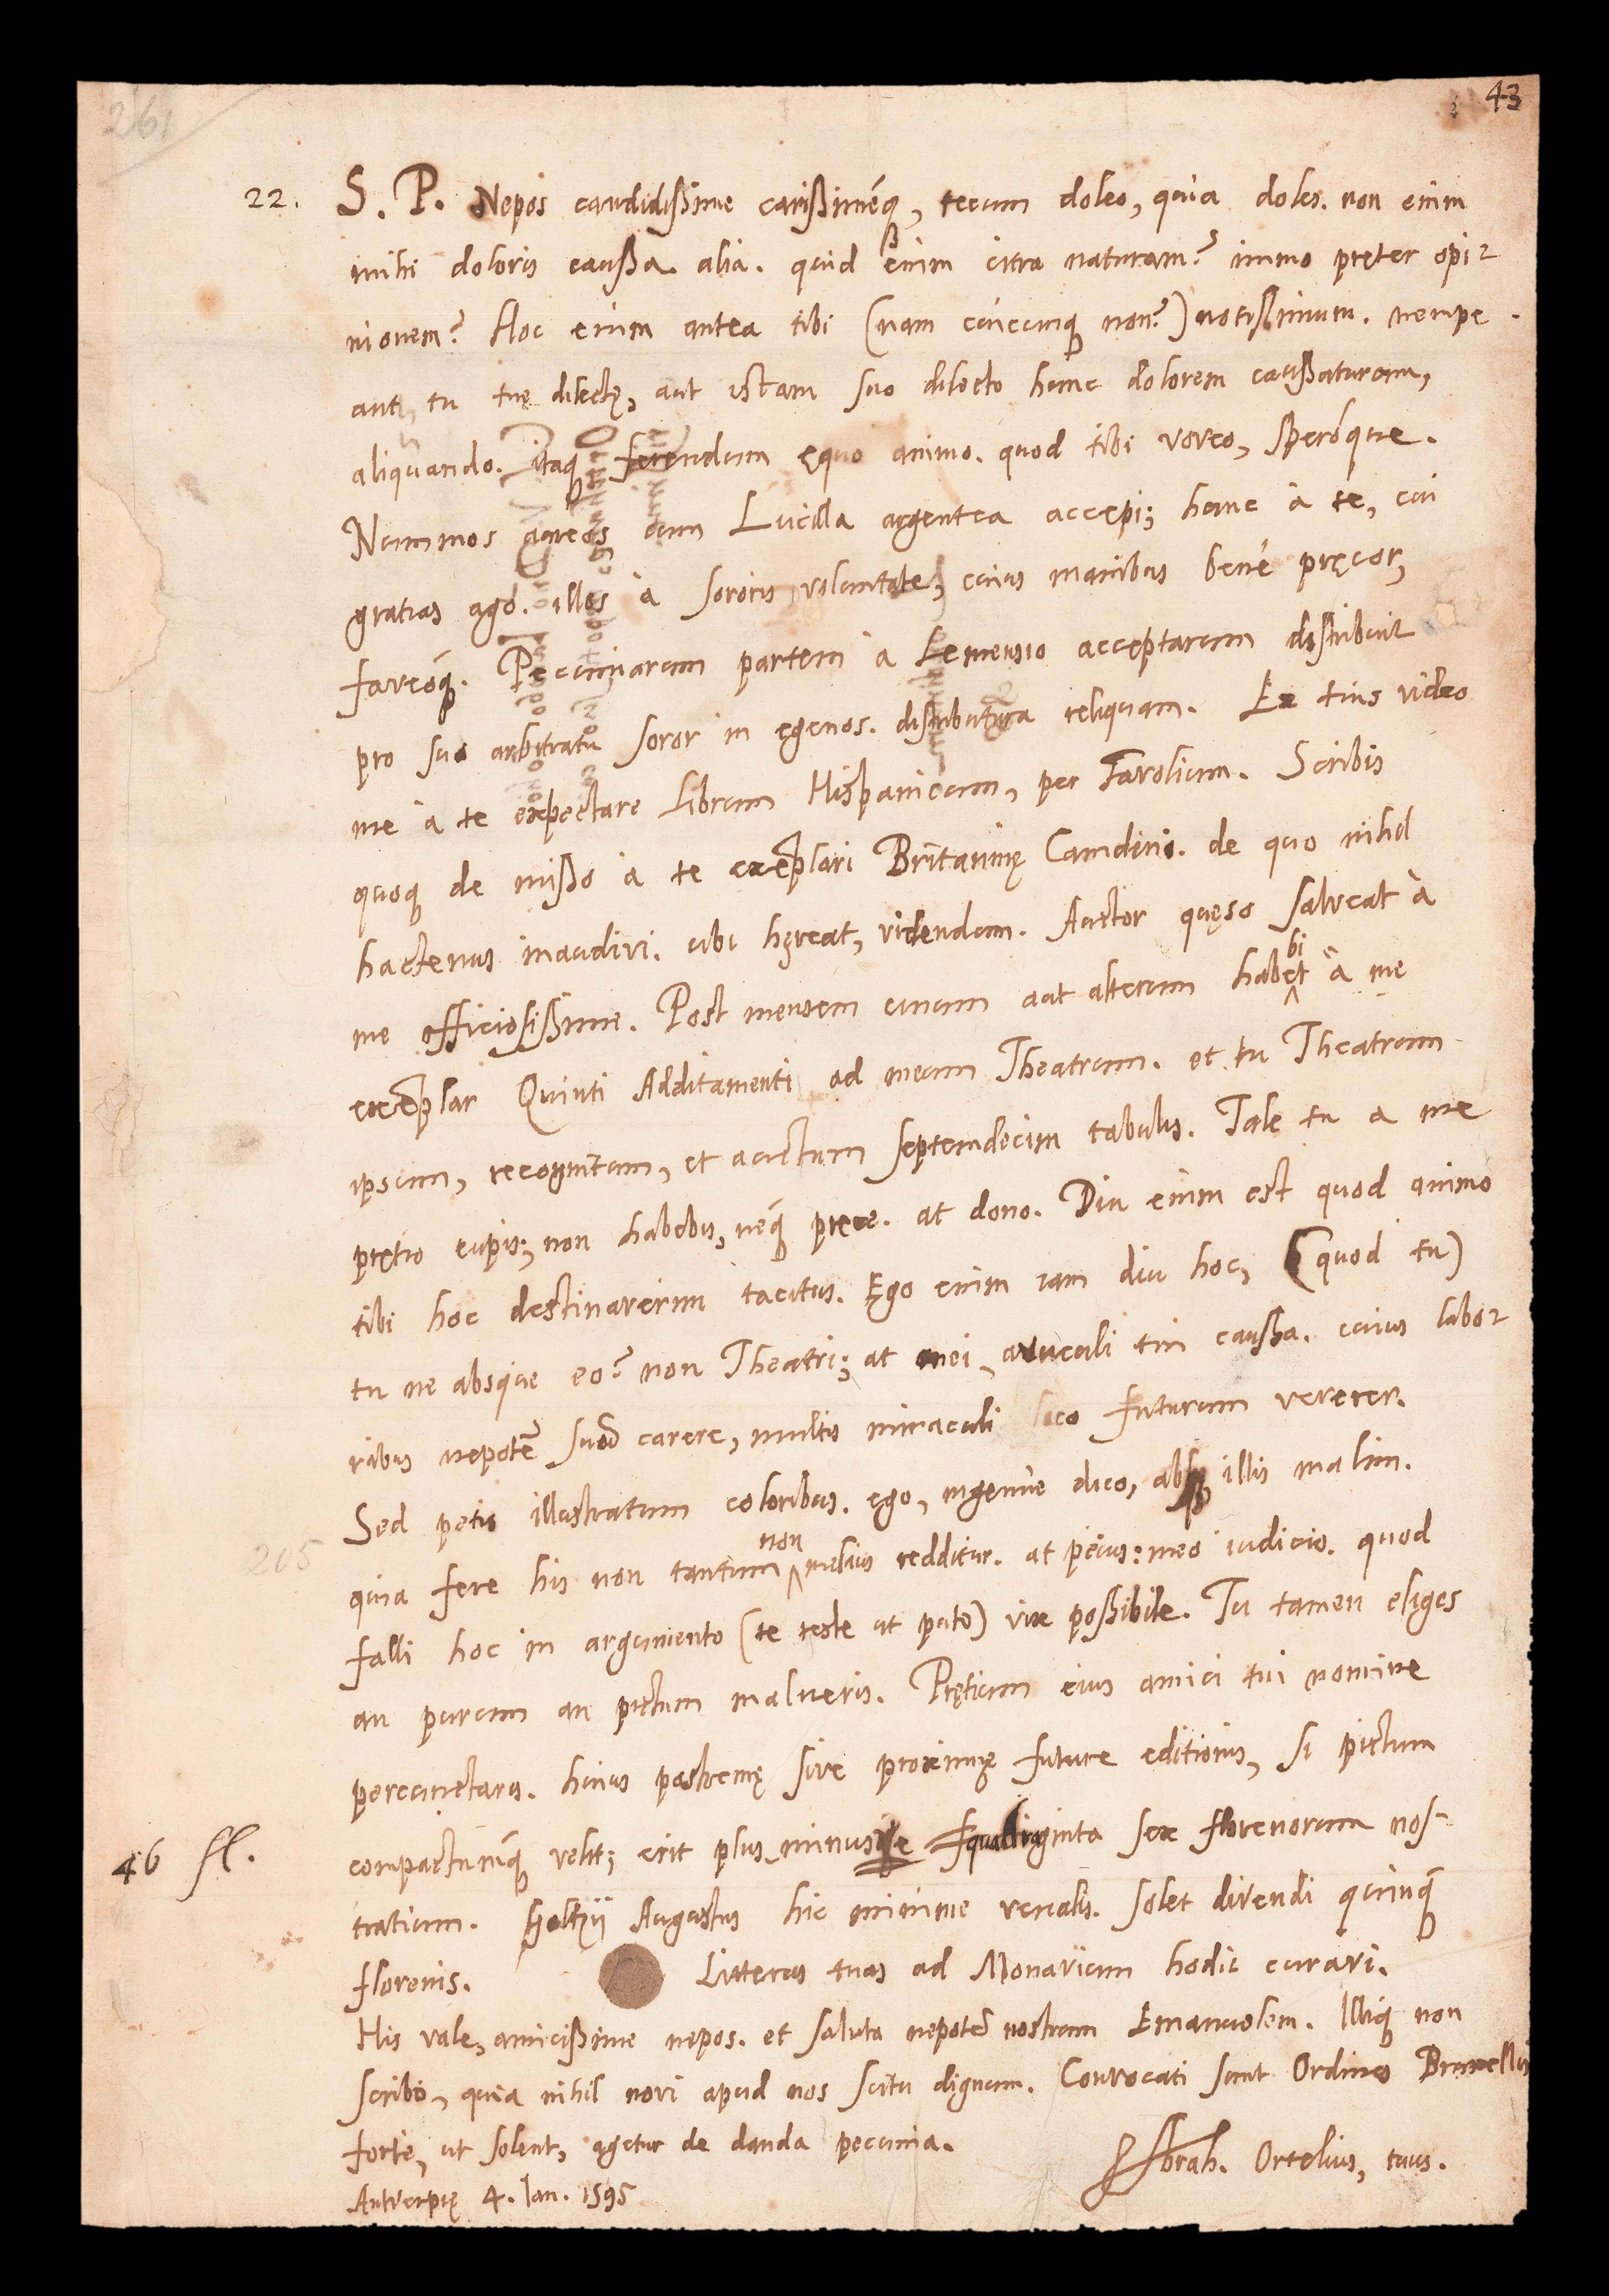 261
43
22. S. P. Nepos candidißime carißimeq̃, tecum doleo, quia doles. non enim
mihi doloris caußa alia. quid enim citra naturam? immo pręter opi-
nionem? Hoc enim antea tibi (nam cuicumq̃ non?) notißimum. nempe
aut tu tuę dilectę, aut istam suo dilecto hunc dolorem caußaturam,
aliquando. itaq̃ ferendum ęquo animo. quod tibi voveo, speróque.
Nummos aureos cum Lucilla argentea accepi; hanc à te, cui
gratias ago. illos à sororis voluntate, cuius manibus bene pręcor,
faveoq̃. Pecuniarum partem à Lemensio acceptarum distribuit
pro suo arbitratu soror in egenos. distributura reliquam. Ex tuis video
me à te expectare librum Hispanicum, per Farolium. Scribis
quoq̃ de mißo à te exẽplari Britannię Camdeni. de quo nihil
hactenus inaudivi. ubi hęreat, videndum. Auctor quęso salveat à
me officiosißime. Post mensem unum aut alterum habebit à me
exẽplar Quinti Additamenti ad meum Theatrum. et tu Theatrum
ipsum, recognitum, et auctum septemdecim tabulis. Tale tu a me
pretio cupis; non habebis, neq̃ prece. at dono. Diu enim est quod animo
tibi hoc destinaverim tacitus. Ego enim iam diu hoc, (quod tu)
tu ne absque eo? non Theatri; at mei avunculi tui caußa. cuius labo-
ribus nepotẽ suũ carere, multis miraculi loco futurum vererer.
Sed petis illustratum coloribus. ego, ingenue dico, absq̃ illis malim.
quia fere his non tantum non melius redditur. at peius: meo iudicio. quod
falli hoc in argumento (te teste ut puto) vix poßibile. Tu tamen eliges
an purum an pictum malueris. Prętium eius amici tui nomine
percunctaris. huius postremę sive proximę future editionis, si pictum
46 fl. compactumq̃ velit; erit plus minusve quadraginta sex florenorum nos-
tratium. Goltzij Augustus hic minime venalis. solet divendi quinq̃
florenis. Litteras tuas ad Monavium hodie curavi.
His vale, amicißime nepos. et saluta nepotẽ nostrum Emanuelem. Illiq̃ non
scribo, quia nihil novi apud nos scitu dignum. Convocati sunt Ordines Bruxellis
forte, ut solent, agetur de danda pecunia.
Abrah. Ortelius, tuus.
Antverpię 4. Ian. 1595
205